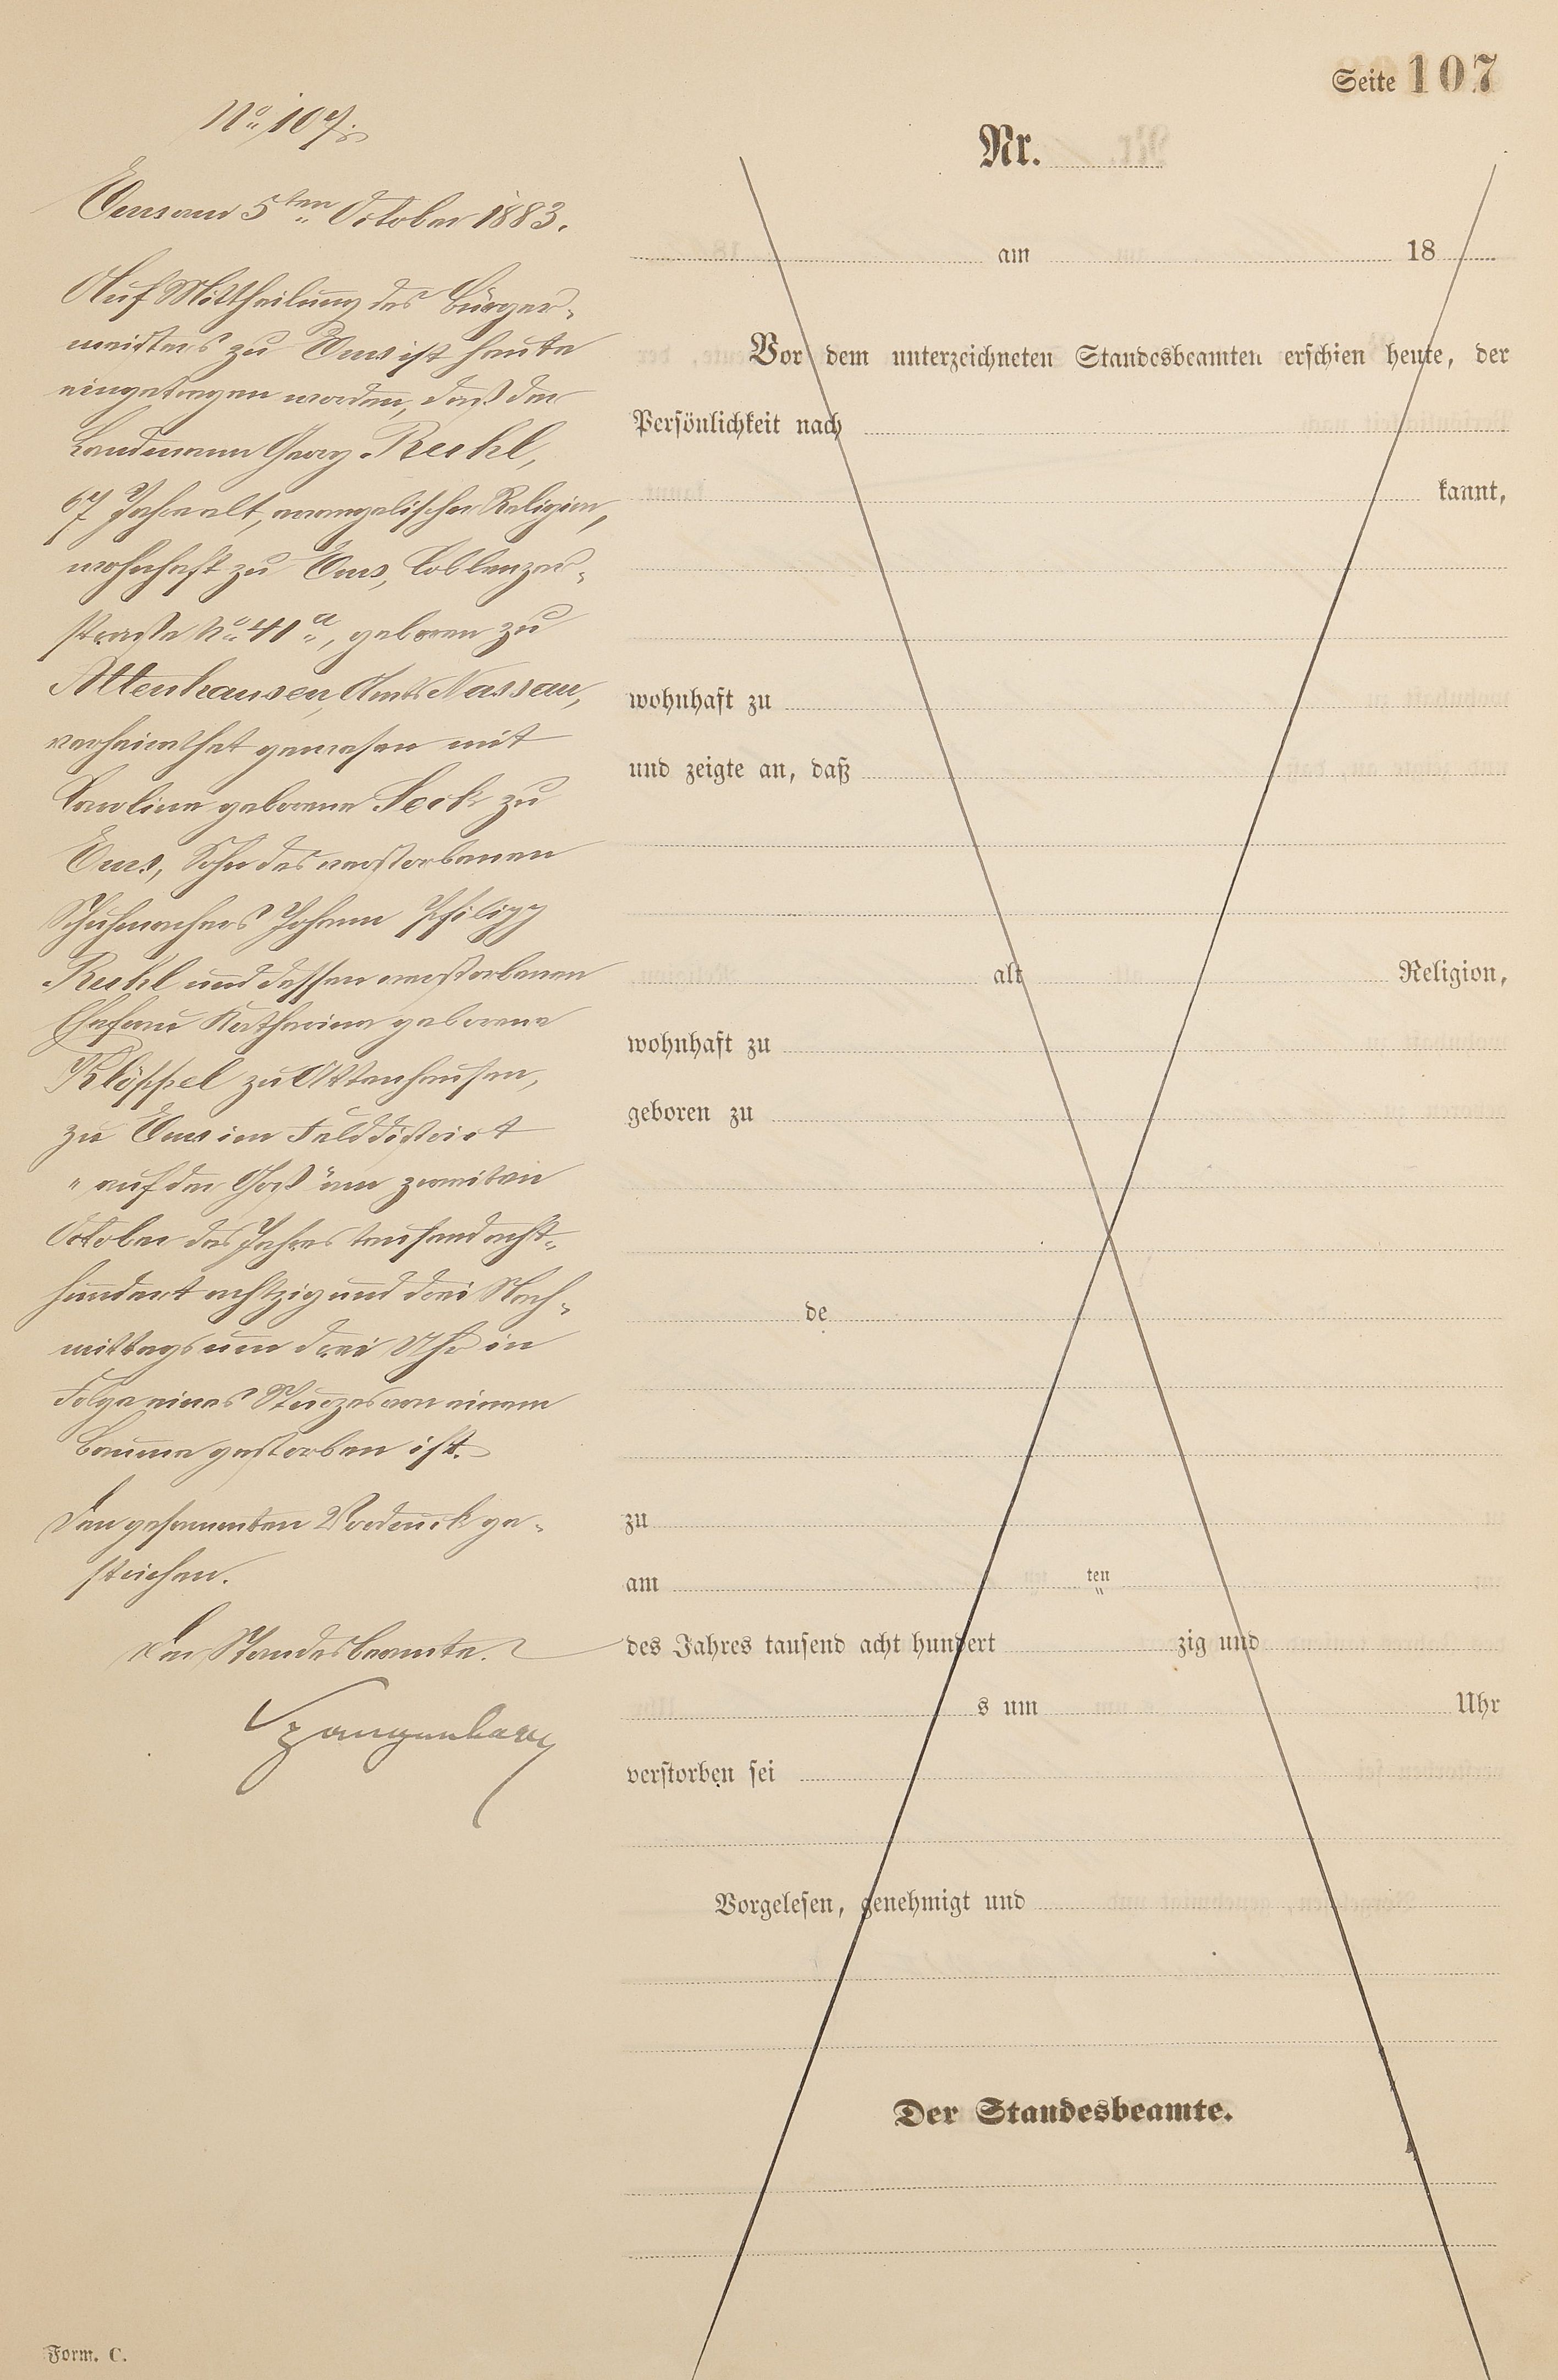 Seite 107
No. 107.
Ems am 5ten October 1883.
Auf Mittheilung des Bürger-
meisters zu Ems ist heute
eingetragen worden, daß der
Landmann Georg
67 Jahre alt, evangelischer Religion,
wohnhaft zu Ems, Coblenzer-
straße No. 41a, geboren zu
Attenhausen, Amts Nassau,
verheirathet gewesen mit
Caroline geborene zu
Ems, Sohn des verstorbenen
Schuhmachers Johann Philipp
und dessen verstorbenen
Ehefrau Katharina geborene
Klöppel zu Attenhausen,
zu Ems im Felddistrict
"auf der " am zweiten
October des Jahres tausend acht-
hundert achtzig und drei Nach-
mittags um drei Uhr in
Folge eines Sturzes von einem
Baume gestorben ist.
Den gesammten Vordruck ge-
strichen.
Der Standesbeamte.
Nr.
am 18
Vor dem unterzeichneten Standesbeamten erschien heute, der
Persönlichkeit nach
kannt,
wohnhaft zu
und zeigte an, daß
alt Religion,
wohnhaft zu
geboren zu
de
zu
am ten
des Jahres tausend acht hundert zig und
s um Uhr
verstorben sei
Vorgelesen, genehmigt und
Der Standesbeamte.
Form. C.